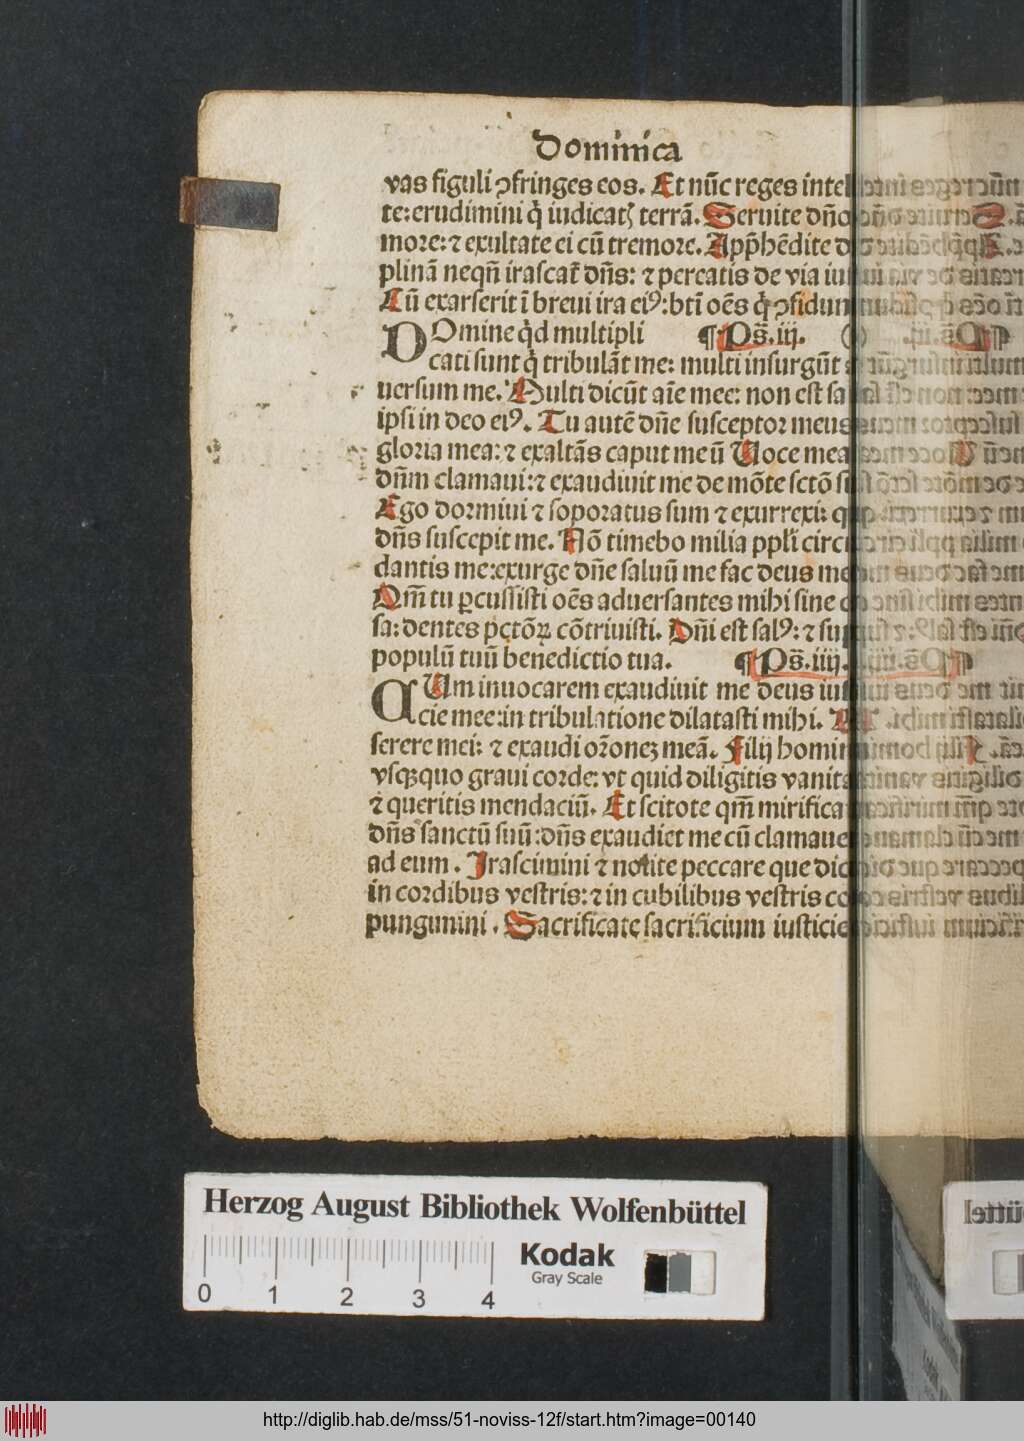 Dominica
vas figuli ꝯfringes eos. Et nūc reges intel
te: erudimini q̇ iudicatꝫ terrā. Seruite dño
more: ⁊ exultate ei cū tremore. App̄hēdite d
plinā neqñ irascat᷑ dñs: ⁊ pereatis de via iu
Cū exarserit ī breui ira eiꝰ: bt̄i oēs q̇ ꝯfidun
DOmine q̇d multipli ¶ Ps̄. iij.
cati sunt q̇ tribulāt me: multi insurgūt
uersum me. Multi dicūt aīe mee: non est sa
ipsi in deo eiꝰ. Tu autē dñe susceptor meus
gloria mea: ⁊ exaltās caput meū Uoce mea
dñm clamaui: ⁊ exaudiuit me de mōte sctō s
Ego dormiui ⁊ soporatus sum ⁊ exurrexi: q
dñs suscepit me. Nō timebo milia ppl̄i circ
dantis me: exurge dñe saluū me fac deus me
Qm̄ tu ꝑcussisti oēs aduersantes mihi sine c
sa: dentes pctōꝝ cōtriuisti. Dñi est salꝰ: ⁊ su
populū tuū benedictio tua. ¶ Ps̄. iiij.
CUm inuocarem exaudiuit me deus ius
cie mee: in tribulatione dilatasti mihi.
serere mei: ⁊ exaudi oꝛoneꝫ meā. Filij homin
vsqꝫquo graui corde: vt quid diligitis vanita
⁊ queritis mendaciū. Et scitote qm̄ mirifica
dñs sanctū suū: dñs exaudiet me cū clamaue
ad eum. Irascimini ⁊ nolite peccare que dic
in cordibus vestris: ⁊ in cubilibus vestris co
pungimini. Sacrificate sacrificium iusticie
Herzog August Bibliothek Wolfenbüttel
Kodak
Gray Scale
0 1 2 3 4
http://diglib.hab.de/mss/51-noviss-12f/start.htm?image=00140